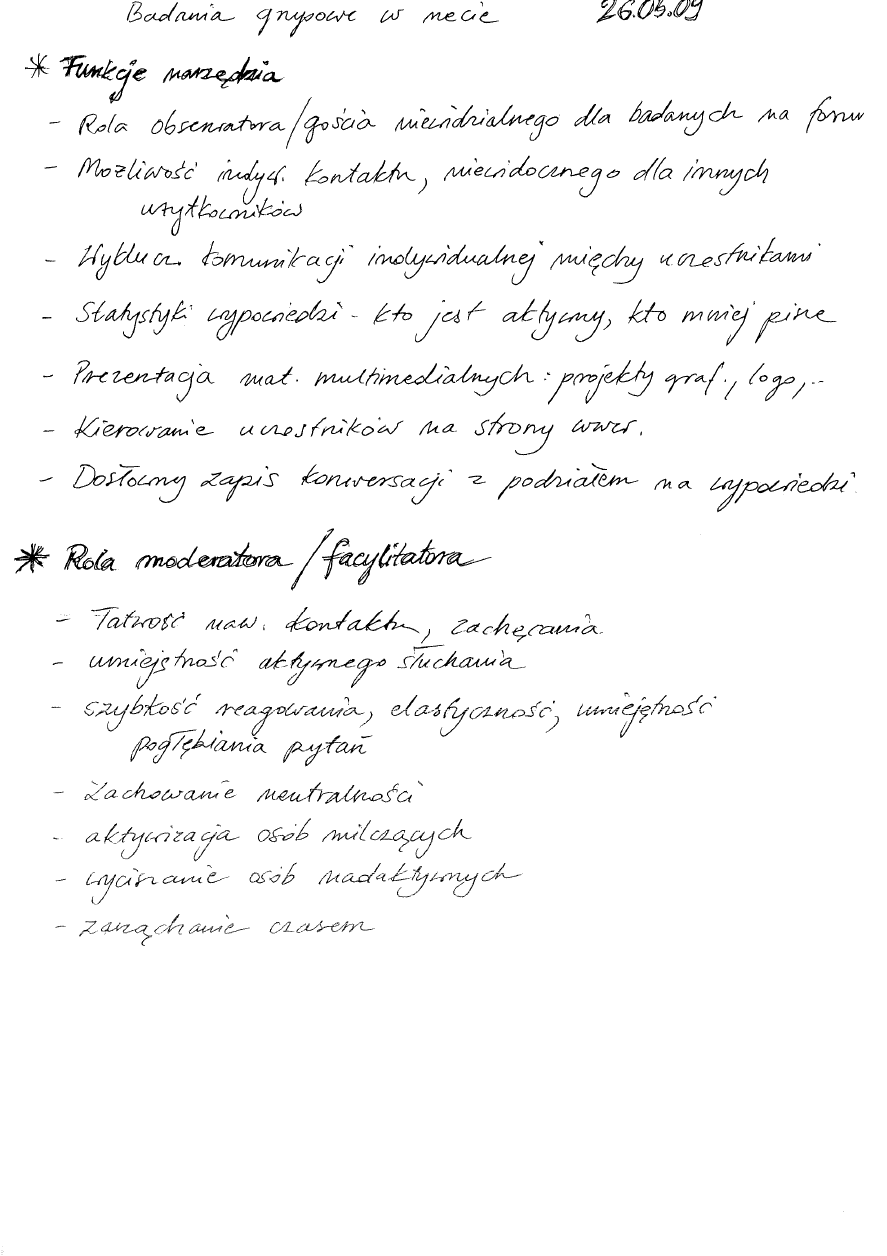 Badania grupowe w necie 26.05.09
* Funkcje narzędzia
- Rola obserwatora/gościa niewidzialnego dla badanych na forum
- Możliwość indyw. kontaktu, niewidocznego dla innych
użytkowników
- Wyklucz. komunikacji indywidualnej między uczestnikami
- Statystyki wypowiedzi - kto jest aktywny, kto mniej pisze
- Prezentacja mat. multimedialnych : projekty graf., logo,..
- Kierowanie uczestników na strony www.
- Dosłowny zapis konwersacji z podziałem na wypowiedzi
* Rola moderatora/facylitatora
- Łatwość naw. kontaktu, zachęcania
- umiejętność aktywnego słuchania
- szybkość reagowania, elastyczność, umiejętność
pogłębiania pytań
- Zachowanie neutralności
- aktywizacja osób milczących
- wyciszanie osób nadaktywnych
- zarządzanie czasem